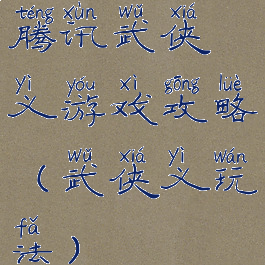 téng xùn wǔ xiá
腾讯武侠
yì yóu xì gōng lüè
义游戏攻略
wǔ xiá yì wán
(武侠义玩
fǎ
法)